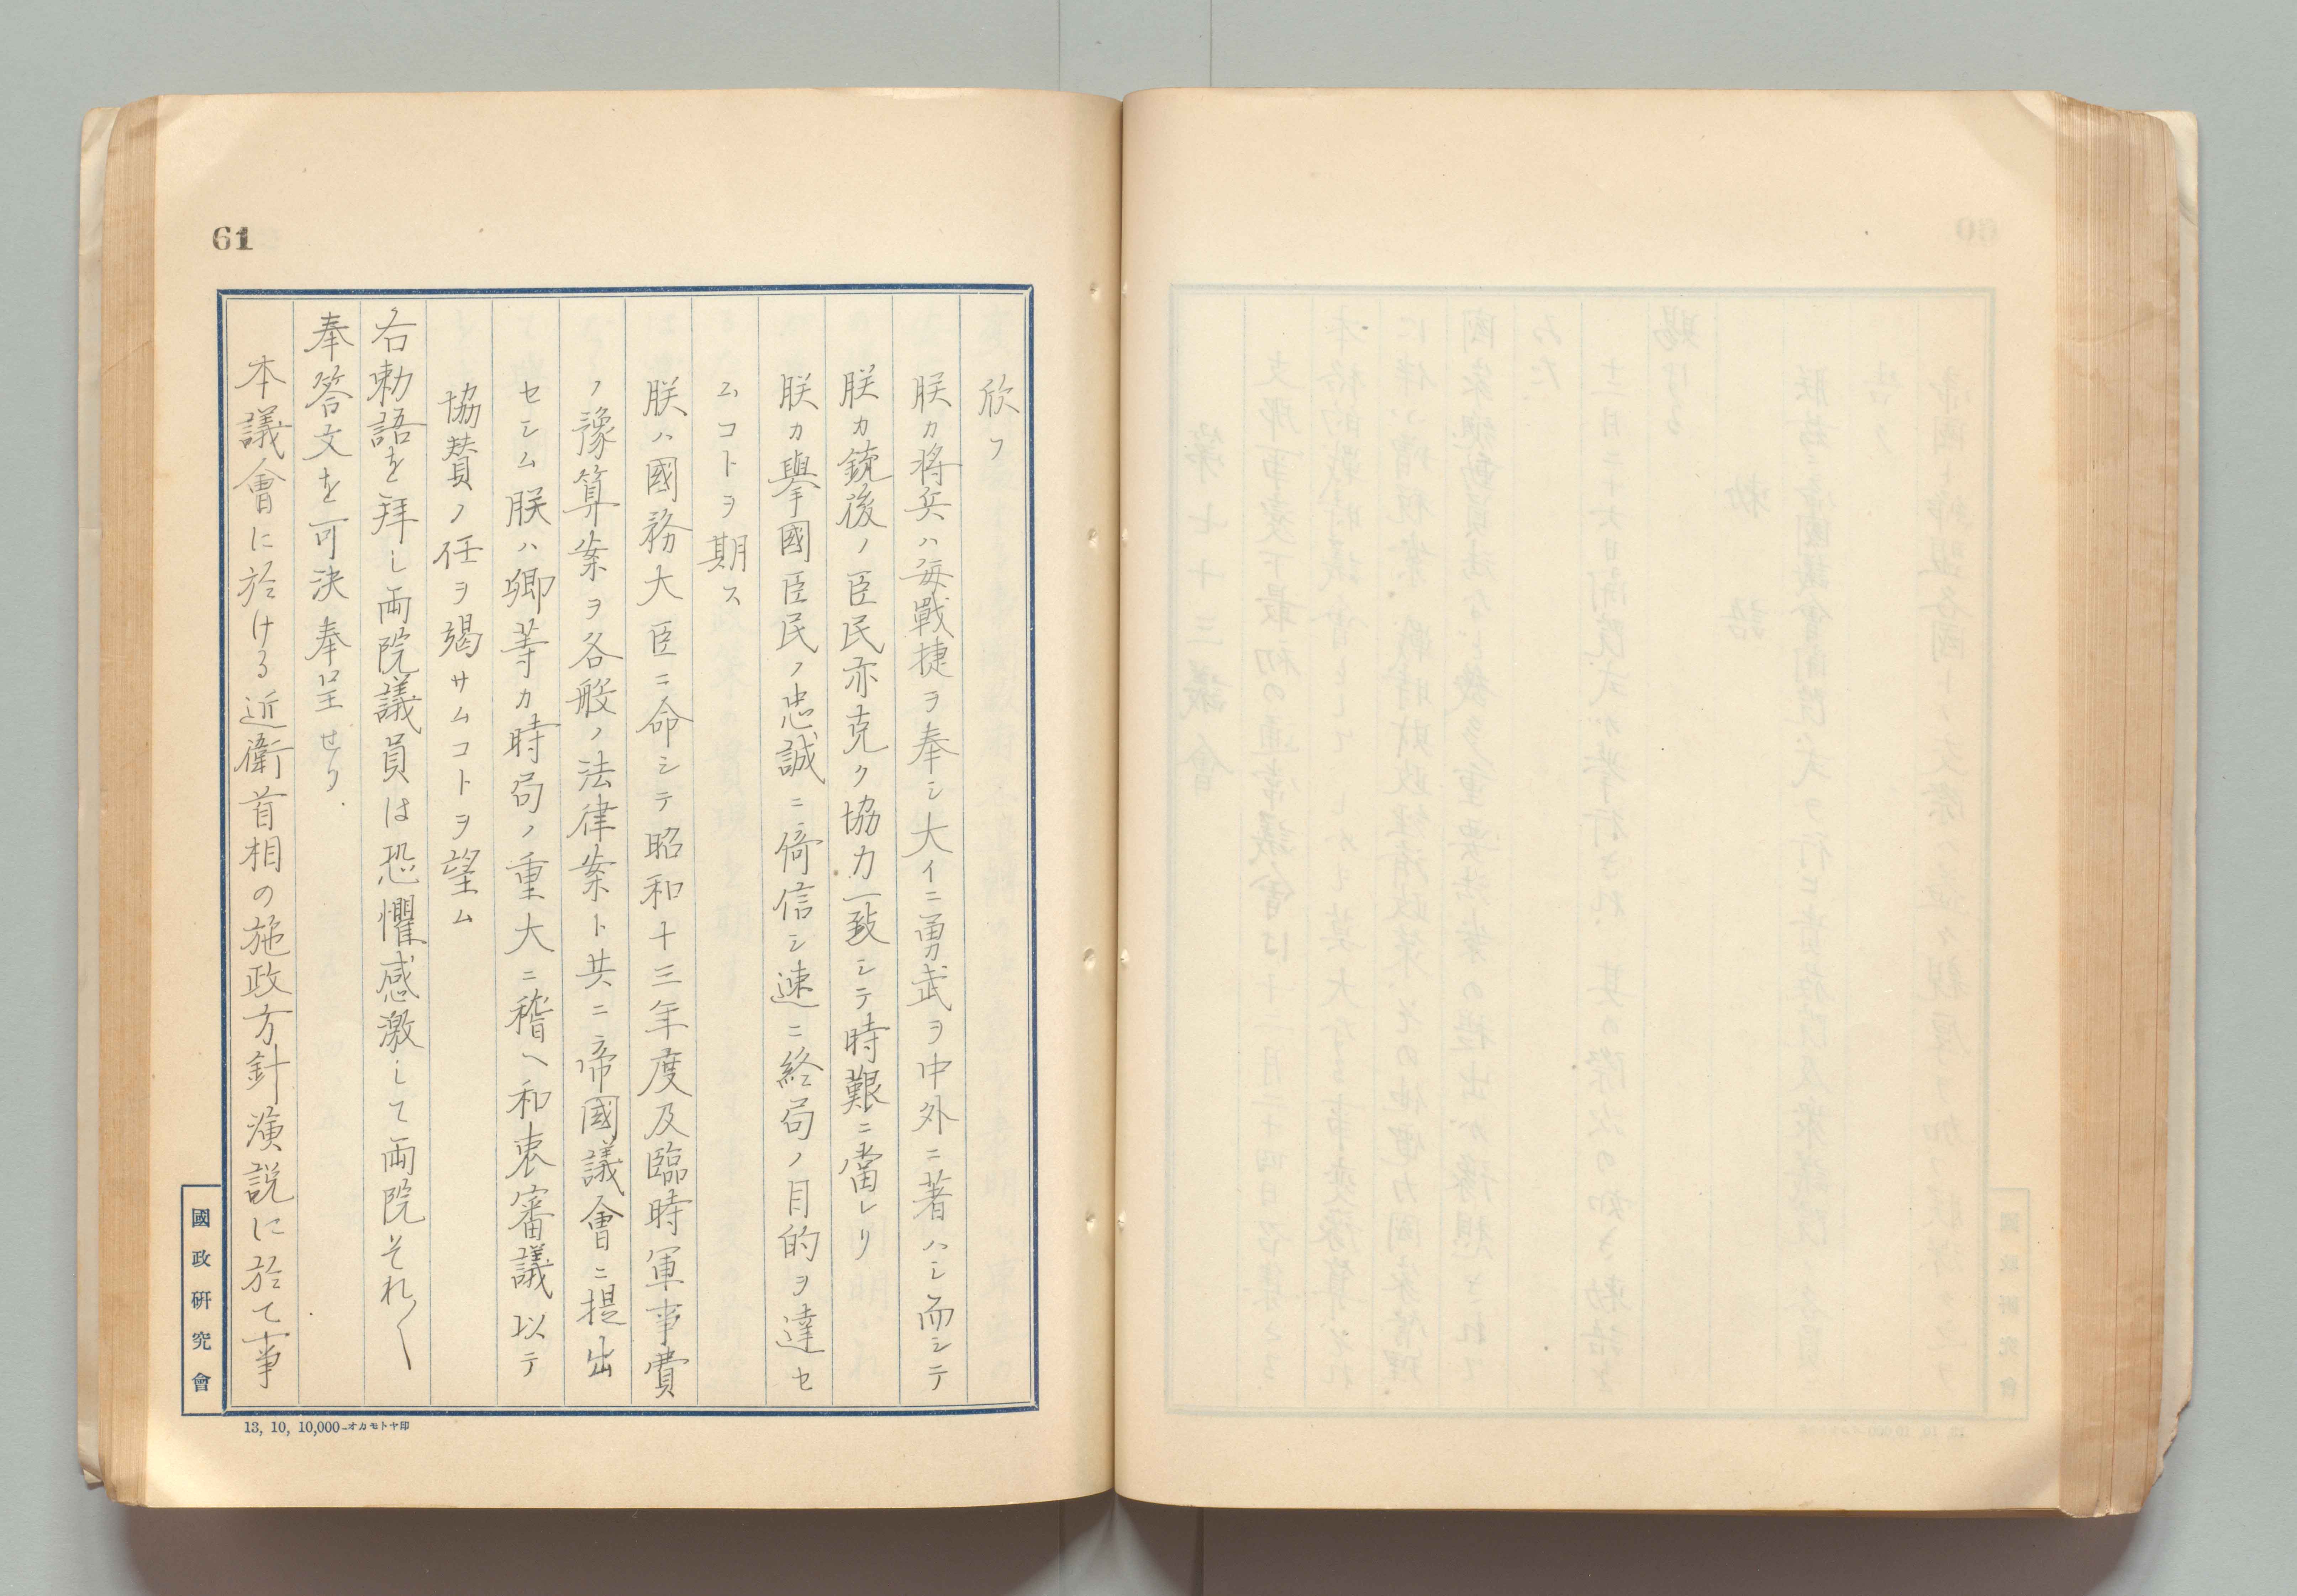 61
欣フ
朕カ将兵ハ毎戰捷ヲ奉シ大イニ勇武ヲ中外ニ著ハシ而シテ
朕カ銃後ノ臣民亦克ク協力一致シテ時艱ニ當レリ
朕カ擧國臣民ノ忠誠ニ倚信シ速ニ終局ノ目的ヲ達セ
ムコトヲ期ス
朕ハ國務大臣ニ命シテ昭和十三年度及臨時軍事費
ノ豫算案ヲ各般ノ法律案ト共ニ帝國議會ニ提出
セシム朕ハ卿等カ時局ノ重大ニ稽ヘ和衷審議以テ
協賛ノ任ヲ竭サムコトヲ望ム
右勅語を拜し両院議員は恐懼感激して両院それ〱
奉答文を可決奉呈せり.
本議會に於ける近衛首相の施政方針演説に於て事
國政研究會
13, 10, 10,000—オカモトヤ印